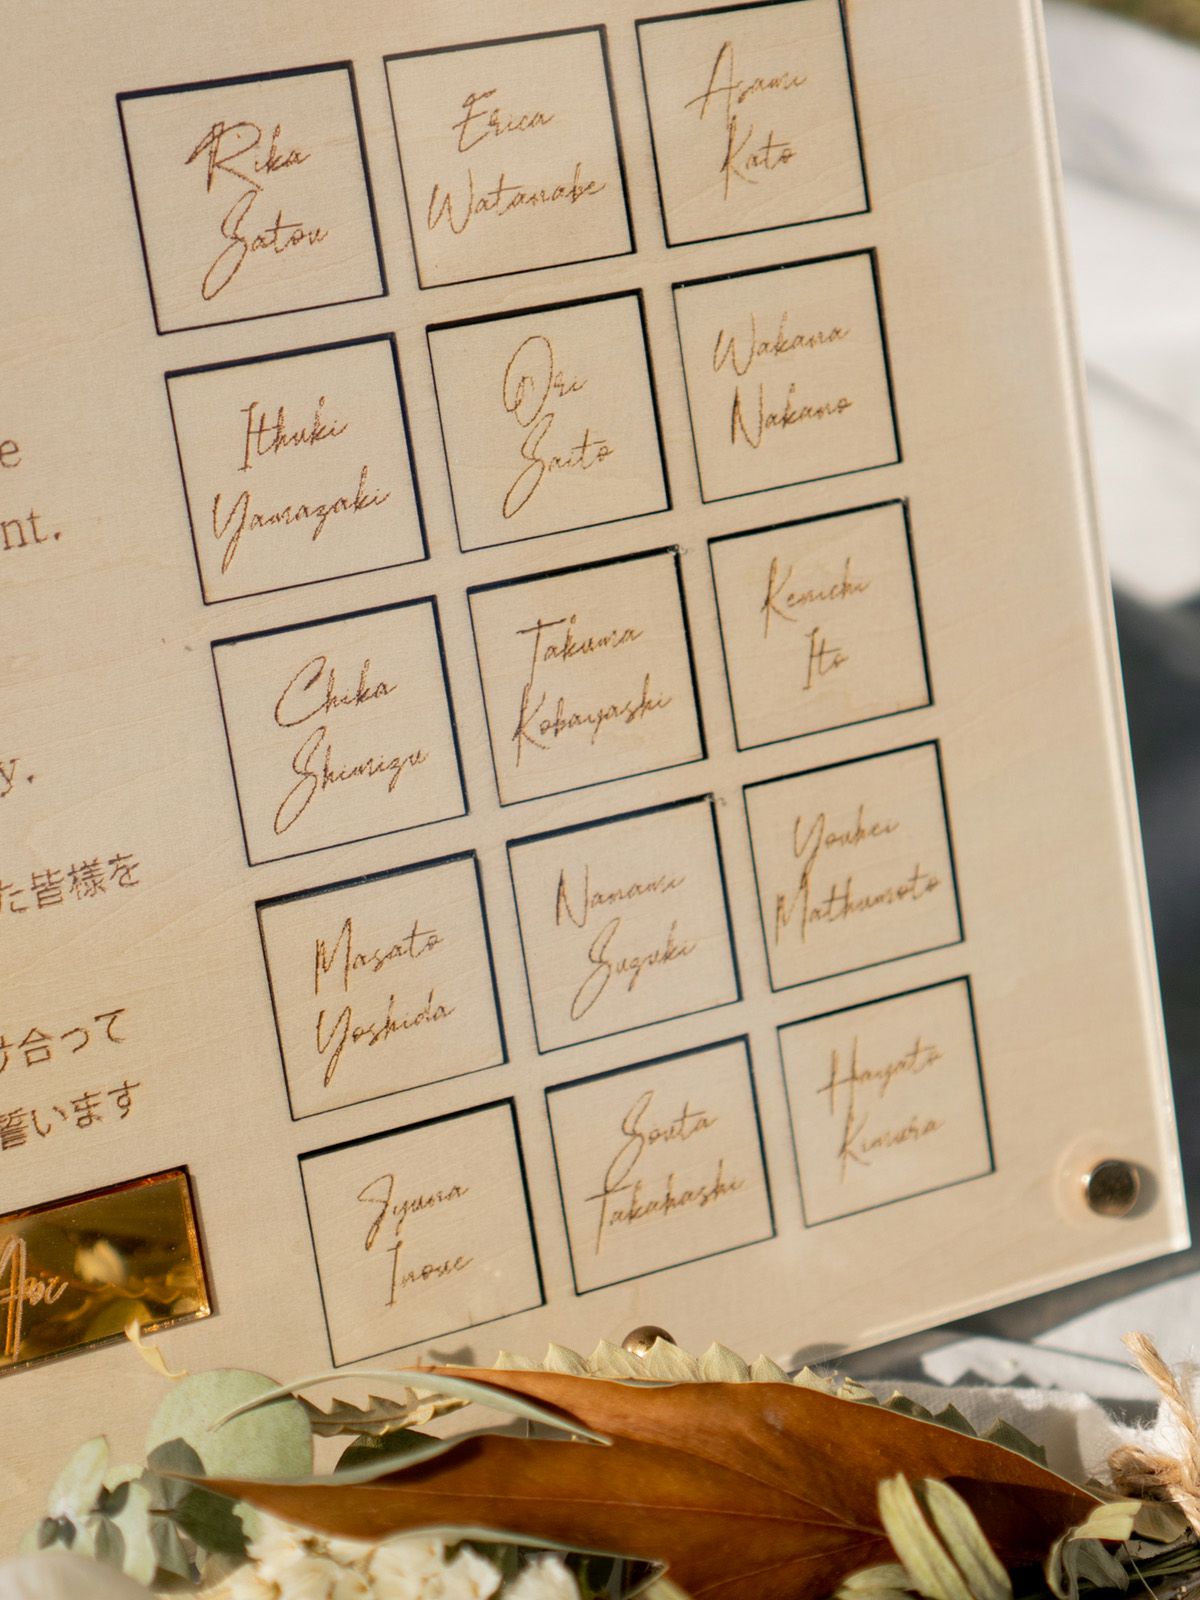 e
nt.
y.
た皆様を
け合って
誓います
Rika
Satou
Erica
Watanabe
Asami
Kato
Ithuki
Yamazaki
Ori
Saito
Wakana
Nakano
Chika
Shimizu
Takuma
Kobayashi
Kenichi
Ito
Masato
Yoshida
Nanami
Suzuki
Youhei
Mathumoto
Jyuna
Inoue
Souta
Takahashi
Hayato
Kimura